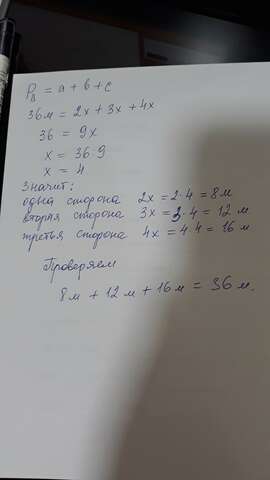 P△ = a + b + c
36м = 2x + 3x + 4x
36 = 9x
x = 36:9
x = 4
Значит:
одна сторона 2x = 2·4 = 8м
вторая сторона 3x = 3·4 = 12 м
третья сторона 4x = 4·4 = 16 м
Проверяем
8м + 12м + 16м = 36м.